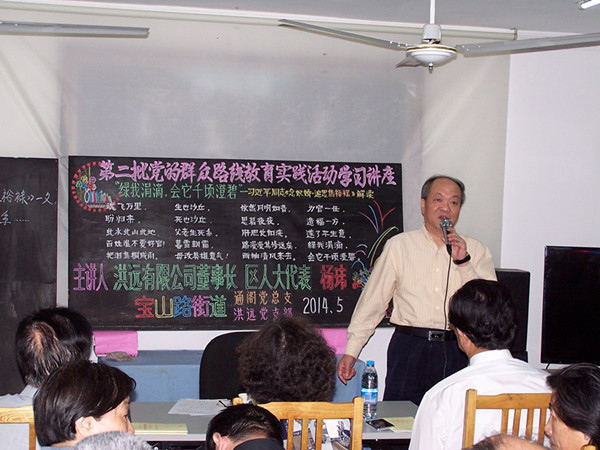 第二批党的群众路线教育实践活动学习讲座
"绿我涓滴,会它千顷澄碧"—习近平同志《念奴娇·追思焦裕禄》解读
魂飞万里, 生也沙丘, 依然月明如昔, 为官一任,
盼归来, 死也沙丘, 思君夜夜, 造福一方,
此水此山此地 父老生死系, 肝胆长如洗, 遂了平生意,
百姓谁不爱好官! 暮雪朝霜, 路漫漫其修远矣, 绿我涓滴,
把泪焦桐成雨, 毋改英雄意气! 两袖清风来去, 会它千顷澄碧
主讲人 洪远有限公司董事长 区人大代表 杨玮
宝山路街道 通阁党总支 2014.5
洪远党支部
裕禄》一文
系……